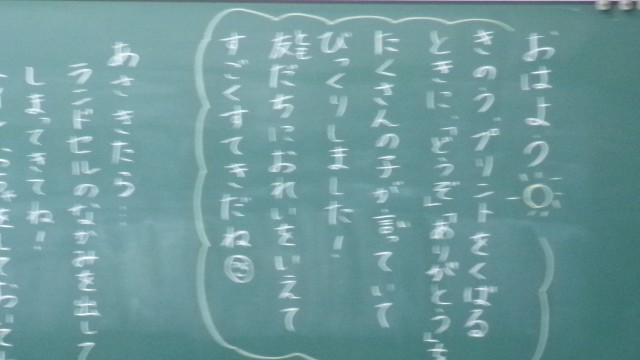 おはよう
きのう、プリントをくばる
ときに、「どうぞ」「ありがとう」を
たくさんの子が言っていて
びっくりしました!
友だちにおれいをいえて
すごくすてきだね
あさきたら…
ランドセルのなかみを出して
しまってきてね!